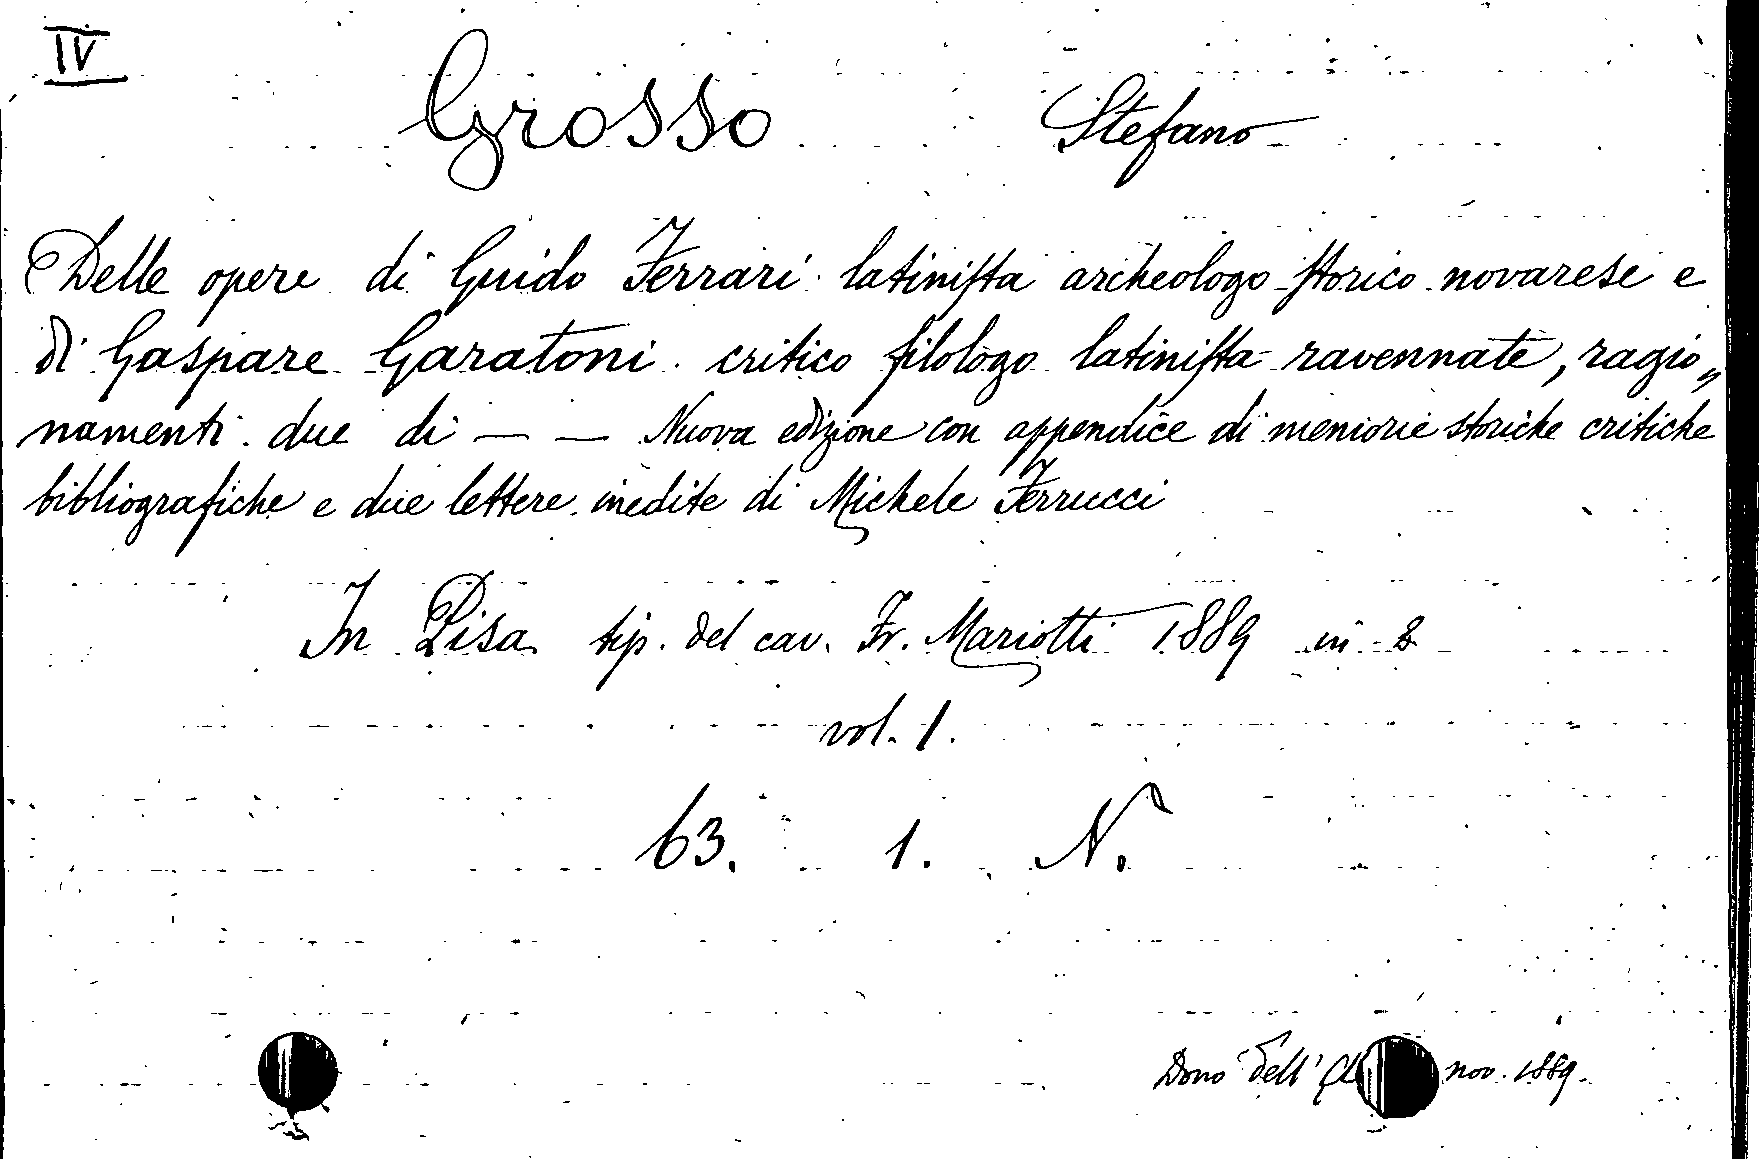 IV
Grosso Stefano
Delle opere di Guido Ferrari latinista archeologo storico novarese e
di Gaspare Garatoni critico filologo latinista ravennate, ragio„
namenti due di — — Nuova edizione con appendice di memorie storiche critiche
bibliografiche e due lettere inedite di Michele Ferrucci
In Pisa tip. del cav. Fr. Mariotti 1889 in 8
vol. 1.
63. 1. N.
Dono dell' nov. 1889.